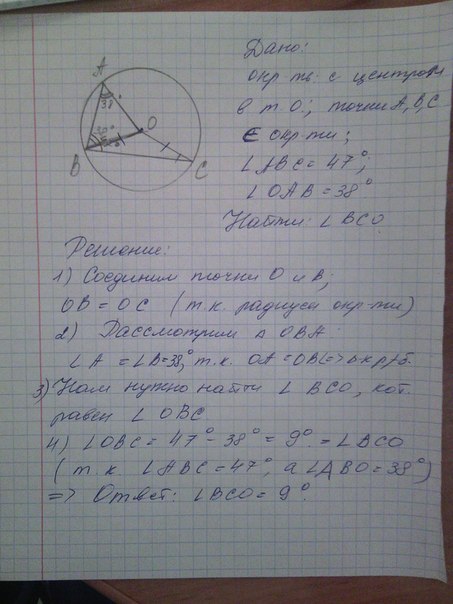 A
38°
O
B
C
Дано:
окр-ть с центром
в т. О; точки А, В, С
∈ окр-ти;
∠ABC = 47°;
∠OAB = 38°
Найти: ∠BCO
Решение:
1) Соединим точки О и В;
OB = OC (т.к. радиусы окр-ти)
2) Рассмотрим △ OBA
∠A = ∠B = 38°, т.к. OA = OB => △ р/б.
3) Нам нужно найти ∠ BCO, кот.
равен ∠ OBC
4) ∠OBC = 47° - 38° = 9° = ∠BCO
(т.к. ∠ABC = 47°, а ∠ABO = 38°)
=> Ответ: ∠BCO = 9°.